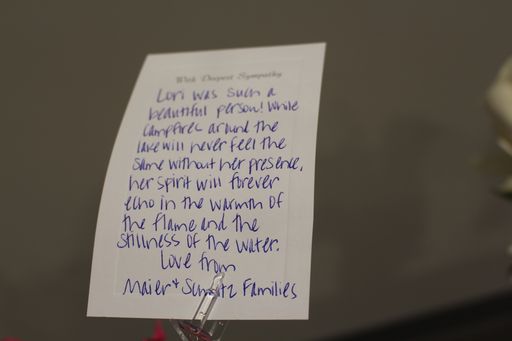 With Deepest Sympathy
Lori was such a
beautiful person! While
campfires around the
lake will never feel the
same without her presence,
her spirit will forever
echo in the warmth of
the flame and the
stillness of the water.
Love from
Maier + Families